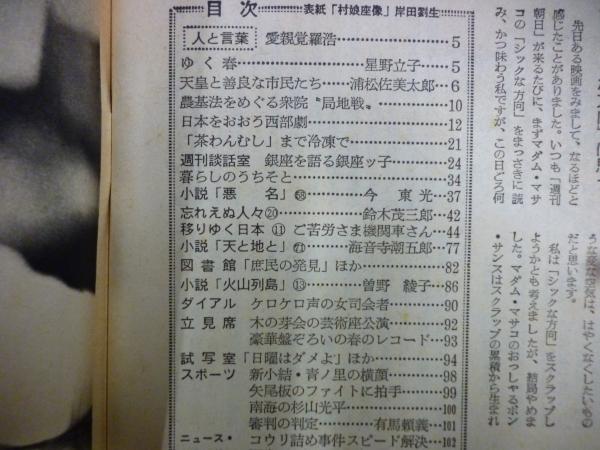 目次 表紙「村娘座像」岸田劉生
人と言葉 愛親覚羅浩……5
ゆく春……星野立子……5
天皇と善良な市民たち……浦松佐美太郎……6
農基法をめぐる衆院〝局地戦〟……10
日本をおおう西部劇……12
「茶わんむし」まで冷凍で……21
週刊談話室 銀座を語る銀座ッ子……24
暮らしのうちそと……34
小説「悪名」……今東光……37
忘れえぬ人々⑳……鈴木茂三郎……42
移りゆく日本⑪ ご苦労さま機関車さん……44
小説「天と地と」……海音寺潮五郎……77
図書館「庶民の発見」ほか……82
小説「火山列島」⑬……曽野綾子……86
ダイアル ケロケロ声の女司会者……90
立見席 木の芽会の芸術座公演……92
豪華盤ぞろいの春のレコード……93
試写室「日曜はダメよ」ほか……94
スポーツ 新小結・青ノ里の横顔……98
矢尾板のファイトに拍手……99
南海の杉山光平……100
審判の判定……有馬頼義……101
ニュース・ コウリ詰め事件スピード解決……102
先日ある映画をみまして、なるほどと
感じたことがありました。いつも「週刊
朝日」が来るたびに、まずマダム・マサ
コの「シックな方向」をまっさきに読
み、かつ味わう私ですが、この日ごろ何
はやくなくしたいもの
だと思います。
私は「シックな方向」をスクラップし
ようかとも考えましたが、結局やめま
した。マダム・マサコのおっしゃるボン
・サンスはスクラップの累積から生まれ